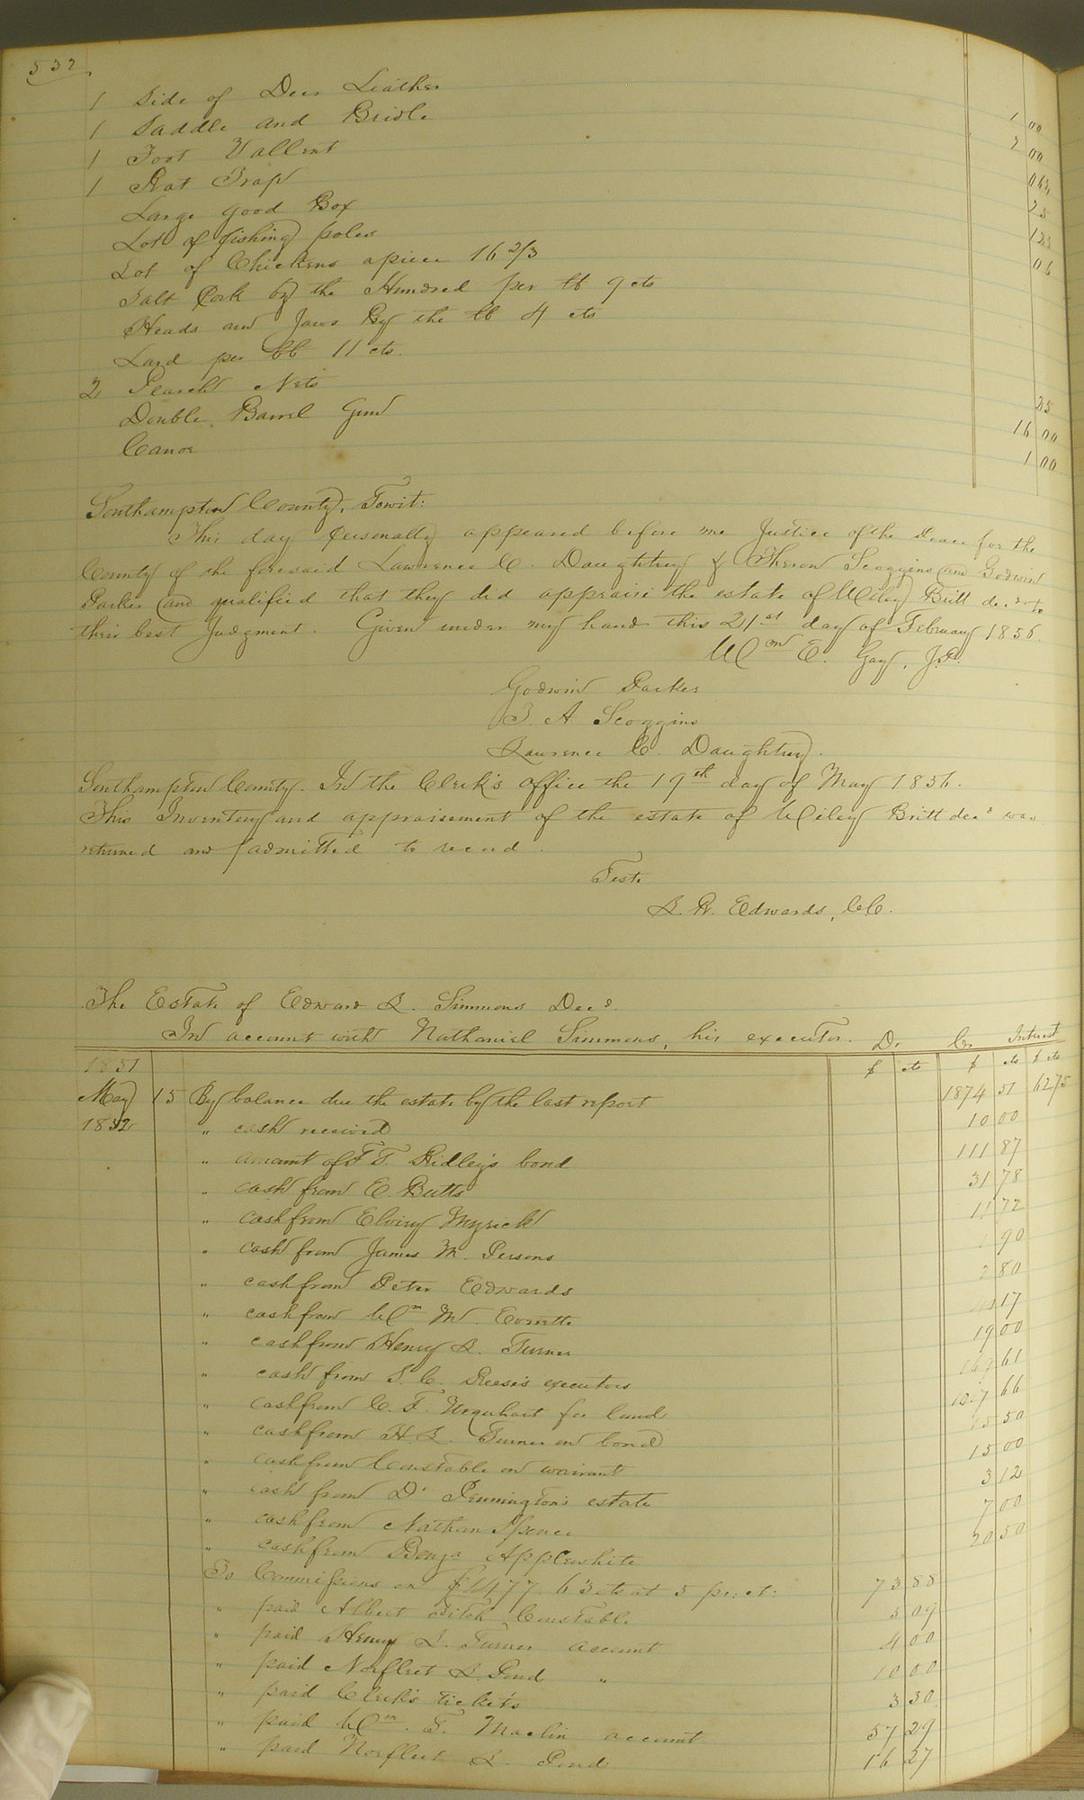 532
1 Side of Deer Leather 1 00
1 Saddle and Bridle 2 00
1 Foot Vallent
1 Rat Trap 25
Large good Box 1 25
Lot of fishing poles 06
Lot of Chickens apiece 16 2/3
Salt Pork by the Hundred per lb 9 cts
Heads and Jaws By the lb 4 cts
Lard per lb 11 cts.
2 Pearch Nets 25
Double Barrel Gun 16 00
Canoe 1 00
Southampton County, Towit:
This day personally appeared before me Justice of the Peace for the
County of the foresaid Lawrence C. Daughtrey & Theron Scoggins and Godwin
Parker and qualified that they did appraise the estate of Wiley Britt decd to
their best Judgment. Given under my hand this 21st day of February 1856.
Wm E. Gay, J.P.
Godwin Parker
T. A Scoggins
Lawrence C. Daughtrey.
Southampton County. In the Clerk's office the 19th day of May 1856.
This Inventory and appraisement of the estate of Wiley Britt decd was
returned and admitted to record.
Teste
L. R. Edwards, C.C.
The Estate of Edward L. Simmons Decd
In account with Nathaniel Simmons, his executor. Dr Cr Interest
1851 $ cts $ cts $ cts
May 15 By balance due the estate by the last report 1874 51 62 75
1852 " cash received 10 00
" amount of F T. Ridley's bond 111 87
" cash from E Butts 31 78
" cash from Elviry Myrick 11 72
" cash from James M. Persons 90
" cash from Peter Edwards 2 80
" cash from Wm M. 17
" cash from Henry L. Turner 19 00
" cash from S. C. Reese's executors 169 61
" cash from C. F. Urquhart for land 66
" cash from H L. Turner on bond 50
" cash from Constable on warrant 15 00
" cash from Dr Pennington's estate 3 12
" cash from Nathan Spence 7 00
" cash from Benja Applewhite 20 50
To Commissions on $1477 63 cts at 5 per ct: 73 88
" paid Albert Constable
" paid Henry L. Turner account 4 00
" paid Norfleet L. Pond " 10 00
" paid Clerk's tickets 3 30
" paid Wm. F. Maclin account 57 29
" paid Norfleet L. Pond 16 27